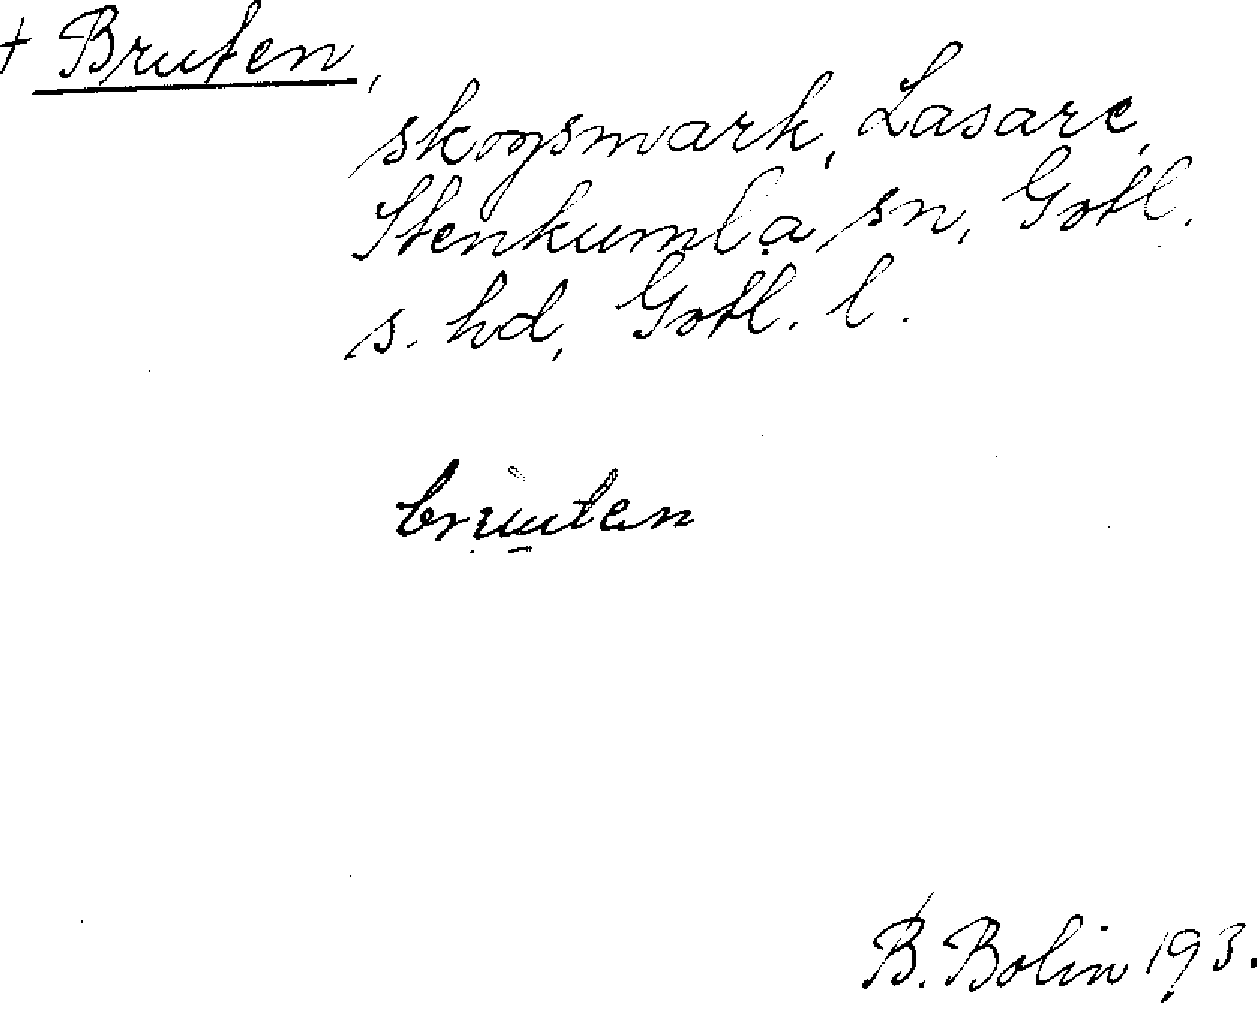 + Bruten,
skogsmark, Lasarc,
Stenkumla sn, Gotl.
s. hd, Gotl. l.
bru̱ten
B. Bolin 193.